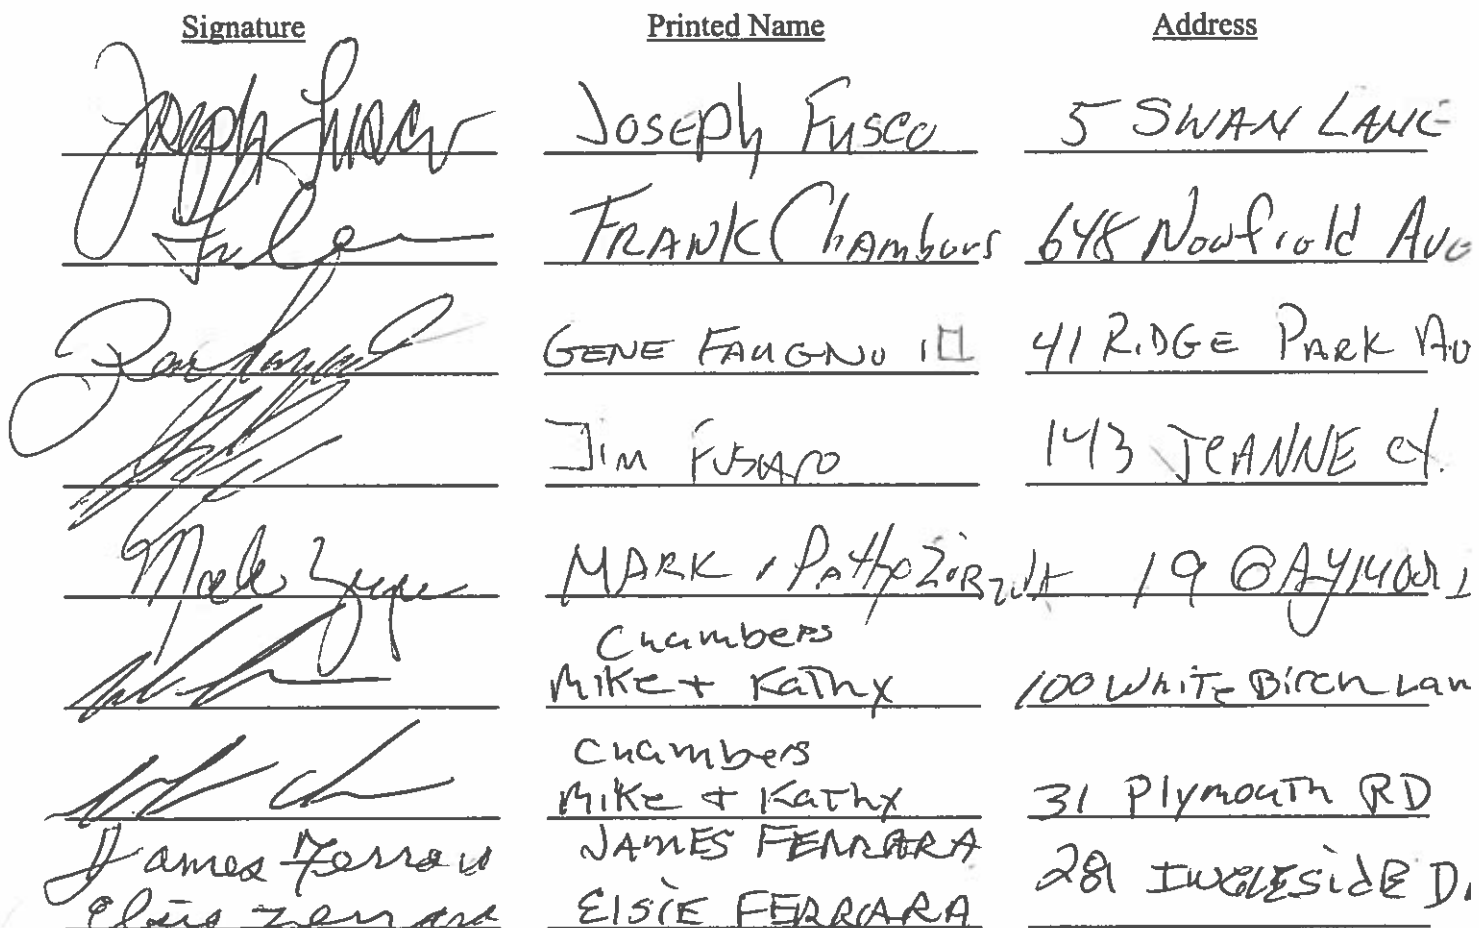 Signature Printed Name Address
Joseph Fusco Joseph Fusco 5 SWAN LANE
FRANK Chambers 648 Newfield Ave
GENE FAUGNO III 41 RIDGE PARK Av
Jim Fusaro 143 JEANNE ct.
MARK Patty 19
Chambers
Mike + Kathy 100 White Birch Lan
Chambers
Mike + Kathy 31 Plymouth RD
James Ferrara JAMES FERRARA 281 INGLESIDE D
Elsie Ferrara ElSiE FERRARA